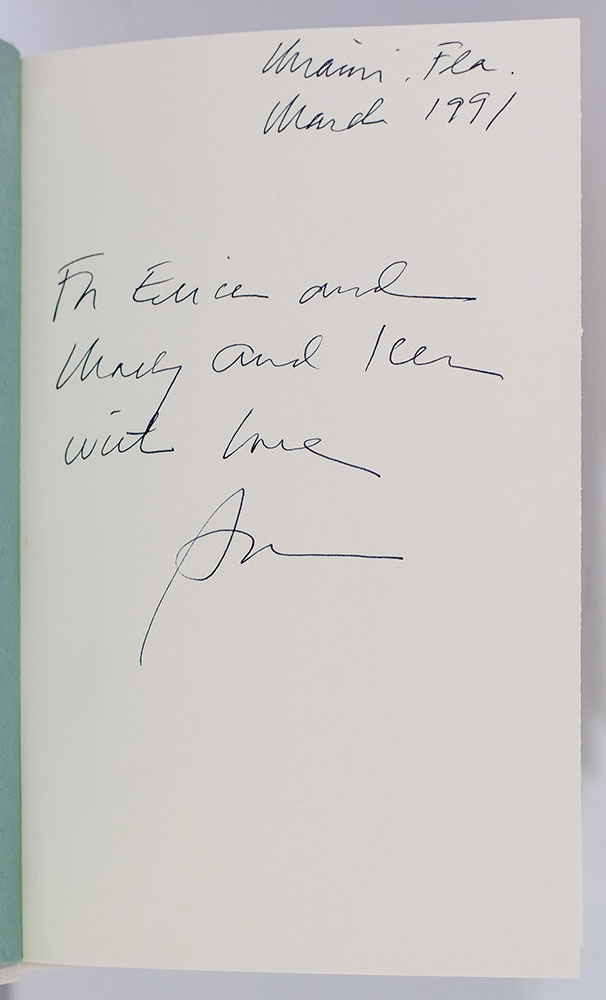 Miami, Fla.
March 1991
For Erica and
and Ken
with love